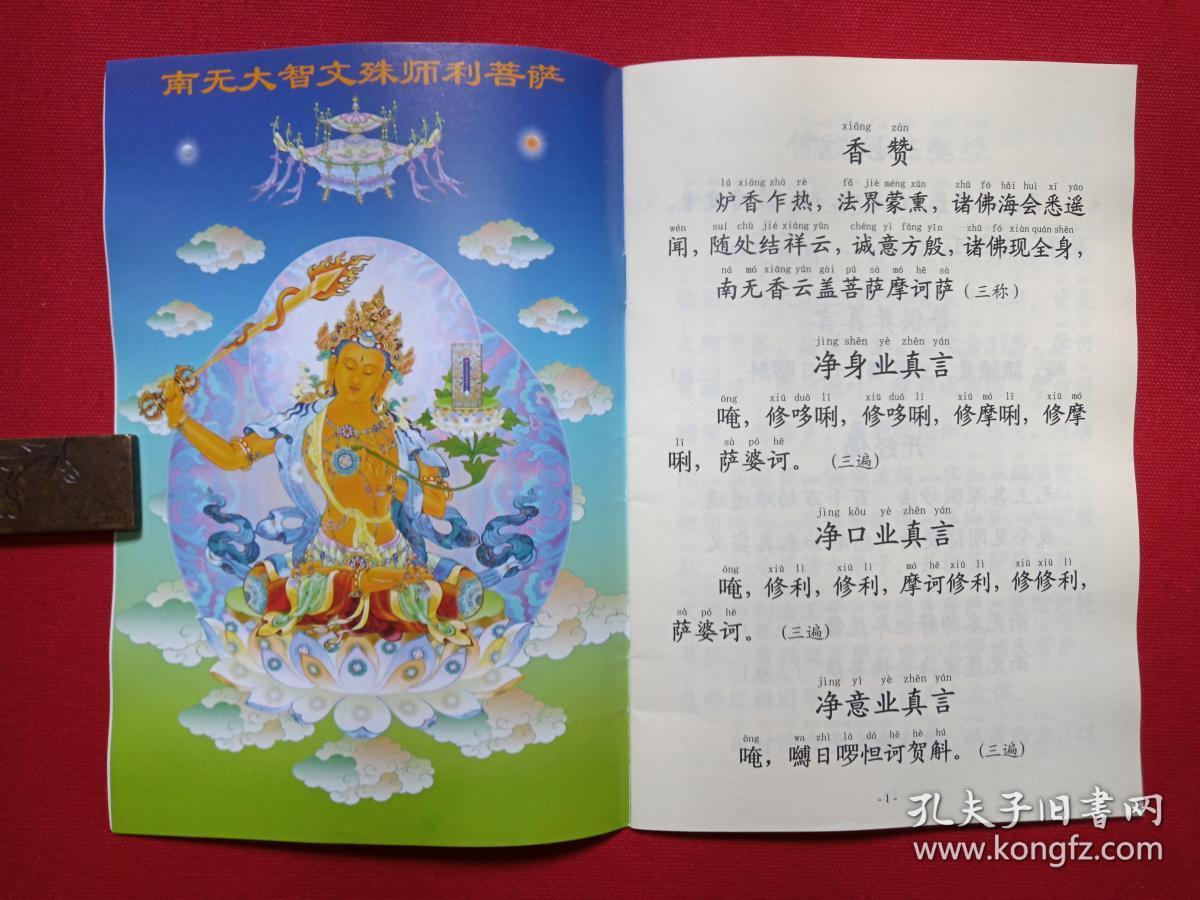 南无大智文殊师利菩萨
xiāng zàn
香赞
lú xiāng zhà rè fǎ jiè méng xūn zhū fó hǎi huì xī yáo
炉香乍热，法界蒙熏，诸佛海会悉遥
wén suí chù jié xiáng yún chéng yì fāng yīn zhū fó xiàn quán shēn
闻，随处结祥云，诚意方殷，诸佛现全身，
ná mó xiāng yún gài pú sà mó hē sà
南无香云盖菩萨摩诃萨（三称）
jìng shēn yè zhēn yán
净身业真言
ōng xiū duō lī xiū duō lī xiū mó lī xiū mó
唵，修哆唎，修哆唎，修摩唎，修摩
lī sà pó hē
唎，萨婆诃。（三遍）
jìng kǒu yè zhēn yán
净口业真言
ōng xiū lì xiū lì mó hē xiū lì xiū xiū lì
唵，修利，修利，摩诃修利，修修利，
sà pó hē
萨婆诃。（三遍）
jìng yì yè zhēn yán
净意业真言
ōng wa zhì là dá hē hè hú
唵，嚩日啰怛诃贺斛。（三遍）
-1-
孔夫子旧书网
www.kongfz.com